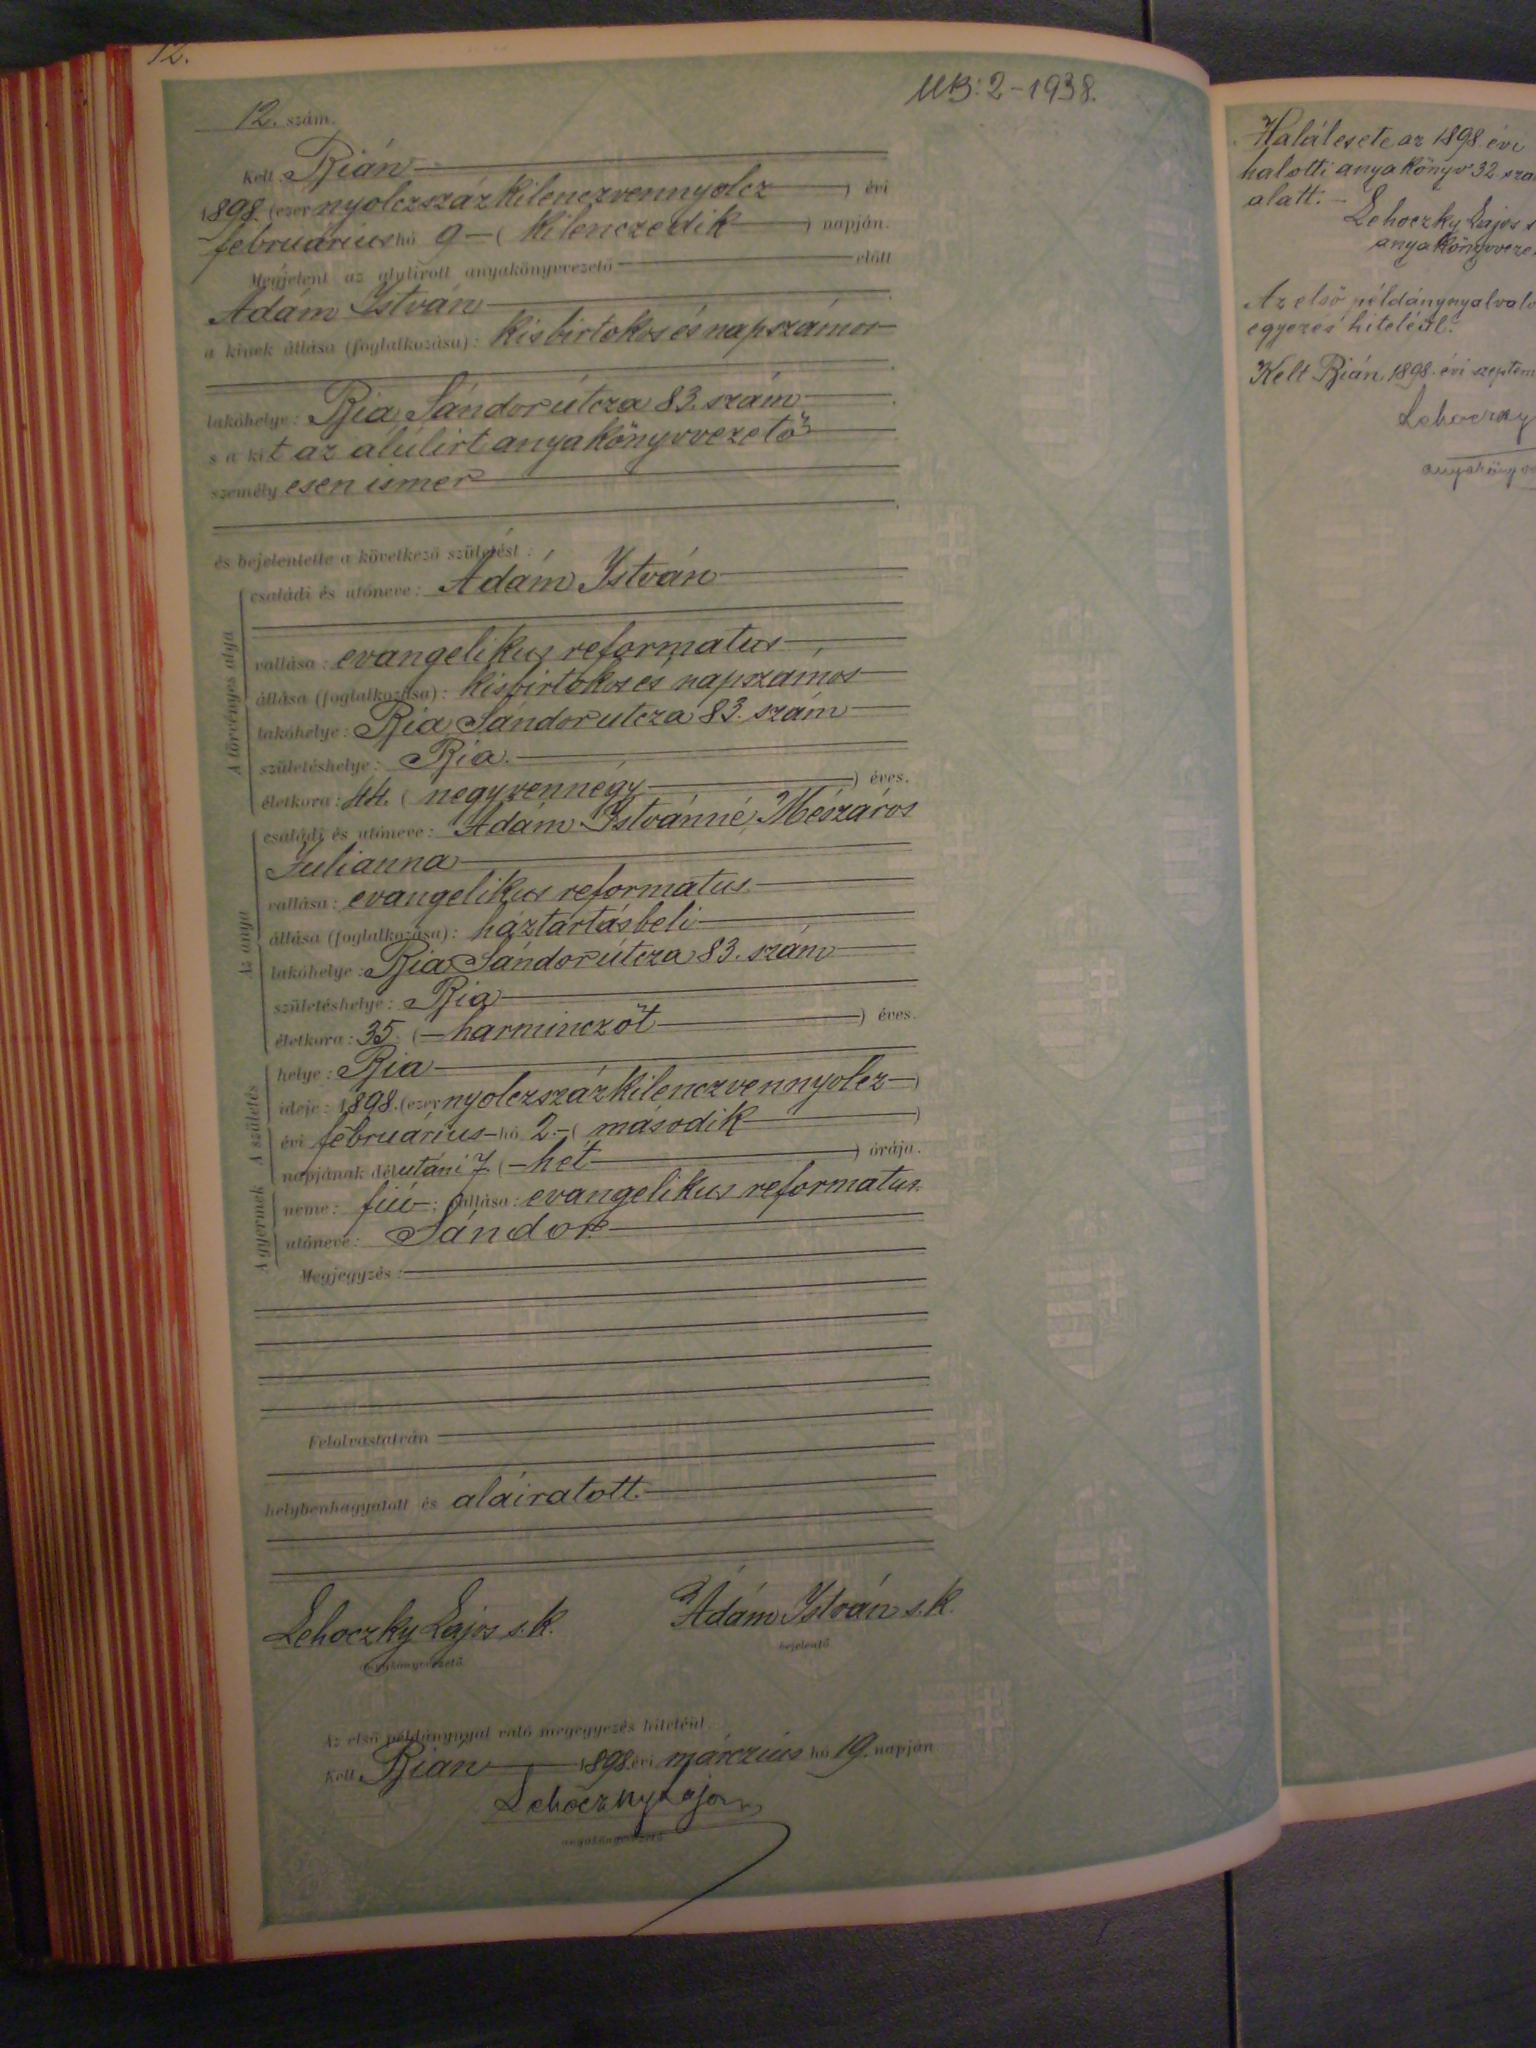 12.
MB: 2-1938.
12. szám.
Kelt Bián
1898. (ezer nyolczszázkilenczvennyolcz) évi
februárius hó 9-(kilenczedik) napján.
Megjelent az alulirott anyakönyvvezető előtt
Ádám István
a kinek állása (foglalkozása): kisbirtokos és napszámos
lakóhelye: Bia Sándor útcza 83. szám
s a kit az alúlirt anyakönyvvezető
személyesen ismer
és bejelentette a következő születést:
A törvényes atya
családi és utóneve: Ádám István
vallása: evangelikus reformatus
állása (foglalkozása): kisbirtokos és napszámos
lakóhelye: Bia Sándor utcza 83. szám
születéshelye: Bia.
életkora: 44. (negyvennégy) éves.
Az anya
családi és utóneve: Ádám Istvánné, Mészáros
Julianna
vallása: evangelikus reformatus.
állása (foglalkozása): háztartásbeli
lakóhelye: Bia Sándor útcza 83. szám
születéshelye: Bia
életkora: 35. (harminczöt) éves.
A születés
helye: Bia
ideje: 1898. (ezer nyolczszázkilenczvennyolcz)
évi februárius hó 2.-(második)
napjának délutáni 7 (hét) órája.
A gyermek
neme: fiú; vallása: evangelikus reformatus.
utóneve: Sándor
Megjegyzés:
Felolvastatván
helybenhagyatott és aláiratott.
Lehoczky Lajos s.k.
anyakönyvvezető.
Ádám István s.k.
bejelentő
Az első példánynyal való megegyezés hiteléül.
Kelt Bián 1898. évi márczius hó 19. napján
Lehoczky Lajos
anyakönyvvezető
Halálesete az 1898. évi
halotti anyakönyv 32 szá
alatt. -
Lehoczky Lajos s
anyakönyvveze
Az első példánynyal való
egyezés hiteléül.
Kelt Bián, 1898. évi szeptem
Lehoczky
anyakönyvve